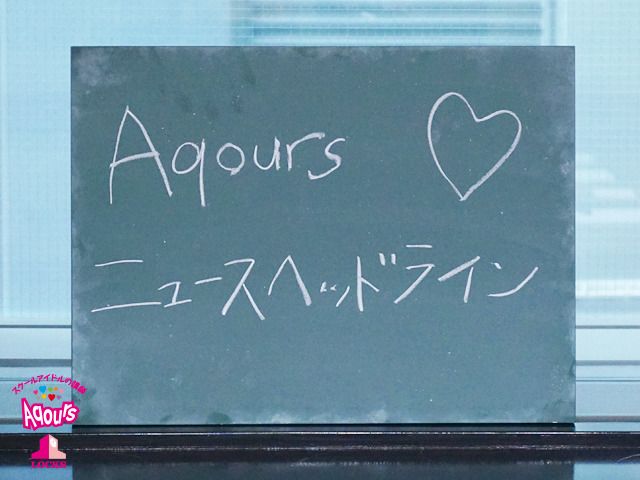 Aqours ♡
ニュースヘッドライン
スクールアイドルの講師
Aqours
LOCKS